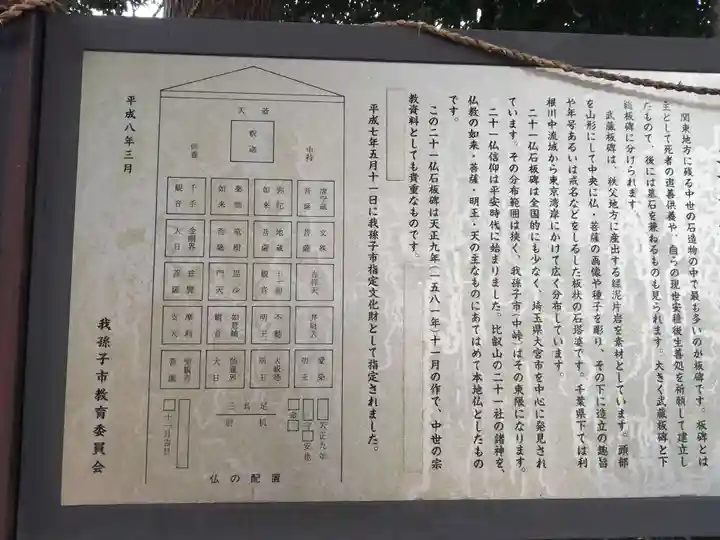 関東地方に残る中世の石造物の中で最も多いのが板碑です。板碑とは
主として死者の追善供養や、自らの現世安穏後生善処を祈願して建立し
たもので、後には墓石を兼ねるものも見られます。大きく武蔵板碑と下
総板碑に分けられます。
武蔵板碑は、秩父地方に産出する緑泥片岩を素材としています。頭部
を山形にして中央に仏・菩薩の画像や種子を彫り、その下に造立の趣旨
や年号あるいは戒名などをしるした板状の石塔婆です。千葉県下では利
根川中流域から東京湾岸にかけて広く分布しています。
二十一仏石板碑は全国的にも少なく、埼玉県大宮市を中心に発見され
ています。その分布範囲は狭く、我孫子市「中峠」はその東限になります。
二十一仏信仰は平安時代に始まりました。比叡山の二十一社の諸神を、
仏教の如来・菩薩・明王・天の主なものにあてはめて本地仏としたもの
です。
この二十一仏石板碑は天正九年(一五八一年)十一月の作で、中世の宗
教資料としても貴重なものです。
平成七年五月十一日に我孫子市指定文化財として指定されました。
天蓋
釈迦
虚空蔵
菩薩
弥陀
如来
薬師
如来
千手
観音
文殊
菩薩
地蔵
菩薩
龍樹
菩薩
金剛界
大日
吉祥天
十一面
観音
毘沙
門天
普賢
菩薩
弁財天
不動
明王
如意輪
観音
摩利
支天
愛染
明王
大威徳
明王
胎蔵界
大日
聖観音
菩薩
天正九年
十一月吉日
仏の配置
平成八年三月
我孫子市教育委員会